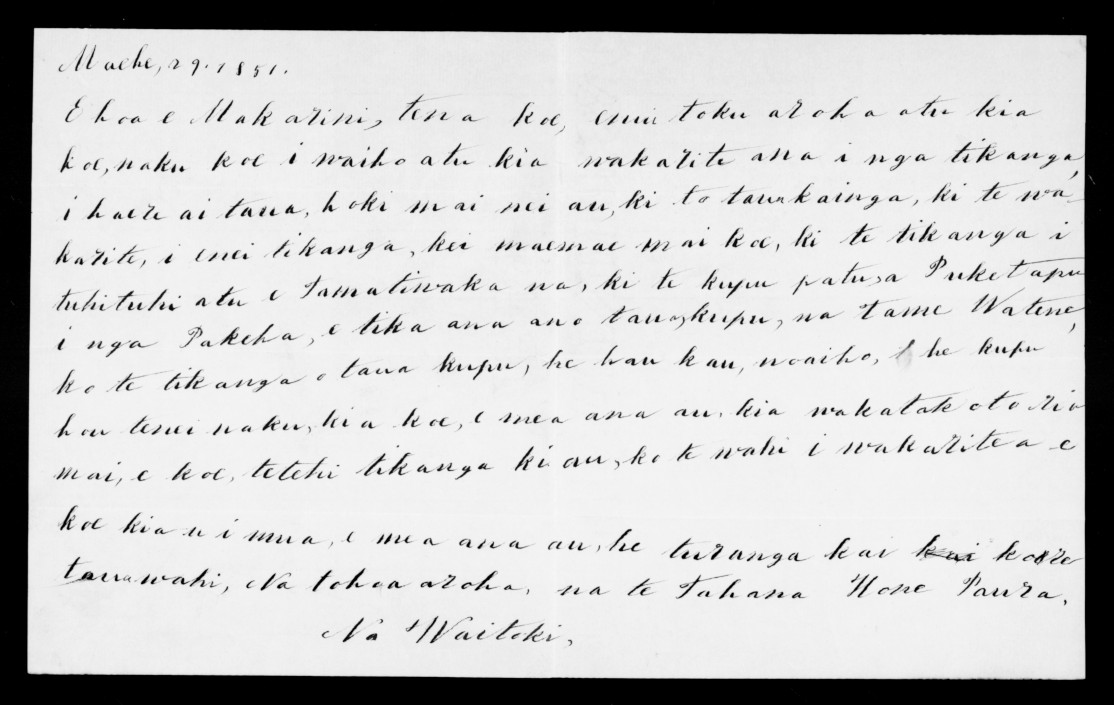 Maehe, 29. 1851.
E hoa e Makarini, tena koe, enui toku aroha atu kia
koe, naku koe i waiho atu kia wakarite ana i nga tikanga,
i haere ai taua, hoki mai nei au, ki to tauakainga, ki te wa-
karite, i enei tikanga, kei maemae mai koe, ki te tikanga i
tuhituhi atu e Tamatiwaka na, ki te kupu patu, a Puketapu
i nga Pakeha, e tika ana ano taua, kupu, na tame Watene,
ko te tikanga o taua kupu, he hau kau, noaiho, he kupu
hou tenei naku, kia koe, e mea ana au, kia wakatakotoria
mai, e koe, tetehi tikanga ki au, ko te wahi i wakaritea e
koe kia u i mua, e mea ana au, he turanga kai kai kaore
tauawahi, Na tohoa aroha, na te Tahana Hone Paura,
Na Waitoki,